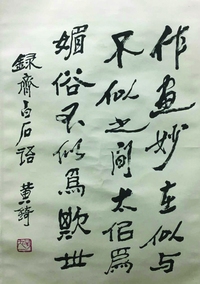 作画妙在似与
不似之间太似为
媚俗不似为欺世
録齊白石语 黄绮